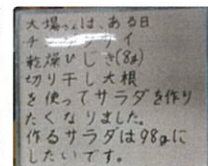 大場さんは、ある日
乾燥ひじき(8g)
切り干し大根
を使ってサラダを作り
たくなりました。
作るサラダは98gに
したいです。